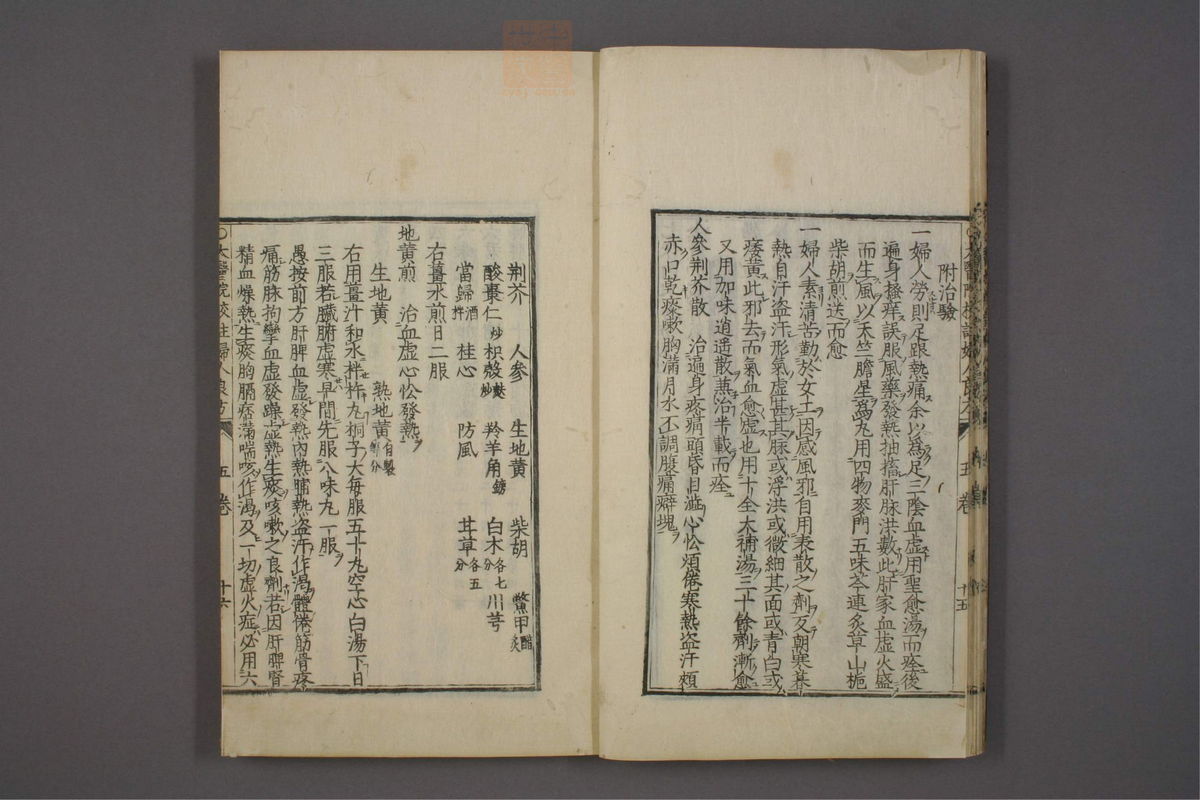 附治驗
一婦人勞則足跟熱痛余以爲足三陰血虛用聖愈湯而痊後
遍身搔痒誤服風藥發熱抽搐肝脉洪數此肝家血虛火盛
而生風以天竺膽星爲丸用四物麥門五味芩連炙草山梔
柴胡煎送而愈
一婦人素清苦勤於女工因感風邪自用表散之劑反朝寒暮
熱自汗盗汗形氣虛甚其脉或浮洪或微細其面或青白或
痿黄此邪去而氣血愈虛也用十全大補湯三十餘劑漸愈
又用加味逍遥散兼治半載而痊
人參荆芥散 治遍身疼痛頭昏目澁心忪煩倦寒熱盗汗頰
赤口乾痰嗽胸滿月水不調腹痛癖塊
荆芥 人參 生地黄 柴胡 鱉甲醋炙
酸棗仁炒 枳殻麩炒 羚羊角鎊 白术各七分 川芎
當歸酒拌 桂心 防風 甘草各五分
右薑水煎日二服
地黄煎 治血虛心忪發熱
生地黄 熟地黄自製等分
右用薑汁和水拌杵丸桐子大每服五十丸空心白湯下日
三服若臟腑虛寒早間先服八味丸一服
愚按前方肝脾血虛發熱内熱晡熱盗汗作渇體倦筋骨疼
痛筋脉拘攣血虛發躁虛熱生痰咳嗽之良劑若因肝脾腎
精血燥熱生痰胸膈痞滿喘咳作渇及一切虛火症必用六
〇太醫院校註婦人良方 五卷 十六